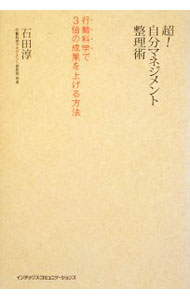 超！
自分マネジメント
整理術
行動科学で
3倍の成果を上げる方法
石田淳
インデックス・コミュニケーションズ